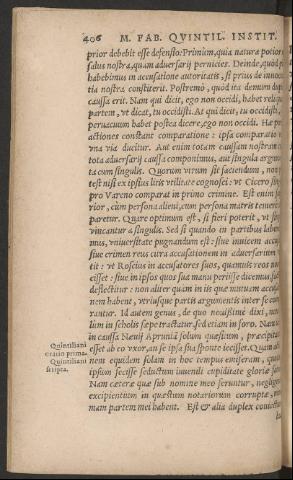 406 M. FAB. QVINTIL. INSTIT.
prior debebit esse defensio. Primùm, quia natura potior
salus nostra, quàm aduersarij pernicies. Deinde, quòd
habebimus in accusatione autoritatis, si prius de innocen
tia nostra constiterit. Postremò, quòd ita demum dup
caussa erit. Nam qui dicit, ego non occidi, habet reliq
partem, vt dicat, tu occidisti. At qui dicit, tu occidisti,
peruacuum habet postea dicere, ego non occidi. Hæ
actiones constant comparatione: ipsa comparatio
vna via ducitur. Aut enim totam caussam nostram
tota aduersarij caussa componimus, aut singula argum
ta cum singulis. Quorum vtrum sit faciendum, non
test nisi ex ipsius litis vtilitate cognosci: vt Cicero sin
pro Vareno comparat in primo crimine. Est enim
rior, cùm persona alieni, cum persona matris temerè
paretur. Quare optimum est, si fieri poterit, vt sin
vincantur à singulis. Sed si quando in partibus labo
mus, vniuersitate pugnandum est: siue inuicem accu
siue crimen reus citra accusationem in aduersarium
tit: vt Roscius in accusatores suos, quamuis reos non
cisset: siue in ipsos quos sua manu perisse dicemus, fa
deflectitur: non aliter quàm in iis quæ mutuam accu
nem habent, vtriusque partis argumentis inter se com
rantur. Id autem genus, de quo nouissimè dixi, non
lùm in scholis sæpe tractatur, sed etiam in foro. Nam
in caussa Næuij Apruniani solùm quæsitum, præcipita
esset ab eo vxor, an se ipsa sua sponte iecisset. Quam
nem equidem solam in hoc tempus emiseram, quod
ipsum fecisse seductum iuuenili cupiditate gloriæ
Nam cæteræ quæ sub nomine meo feruntur, negligen
excipientium in quæstum notariorum corruptæ,
mam partem mei habent. Est & alia duplex coniect
Quintiliani
oratio prima.
Quintiliani
scripta.